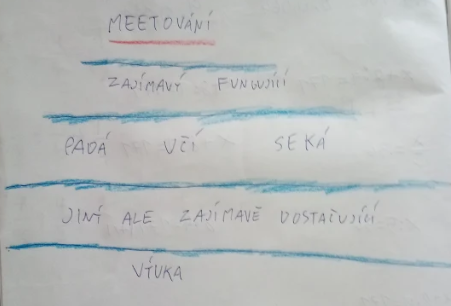 MEETOVÁNÍ
ZAJÍMAVÝ FUNGUJÍCÍ
PADÁ UČÍ SEKÁ
JINÝ ALE ZAJÍMAVĚ DOSTAČUJÍCÍ
VÝUKA